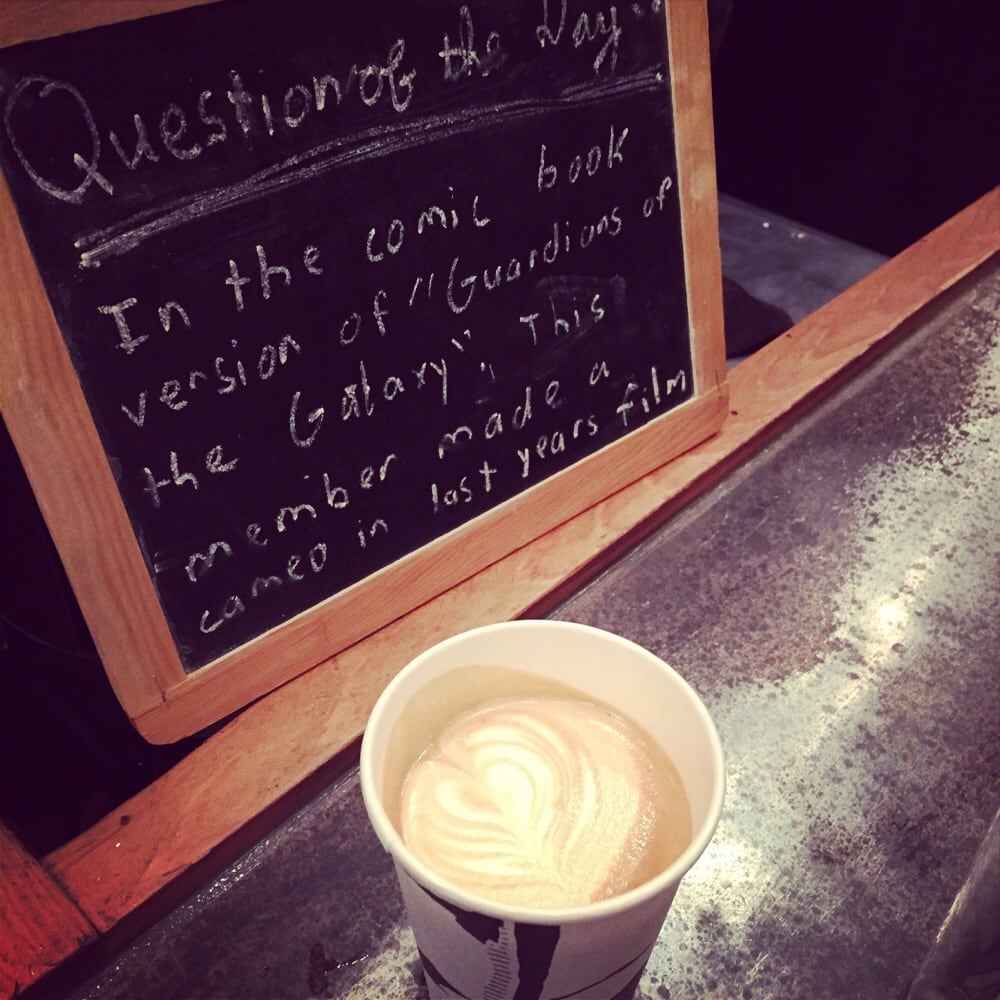 Question of the Day:
In the comic book
version of "Guardians of
the Galaxy", This
member made a
cameo in last years film